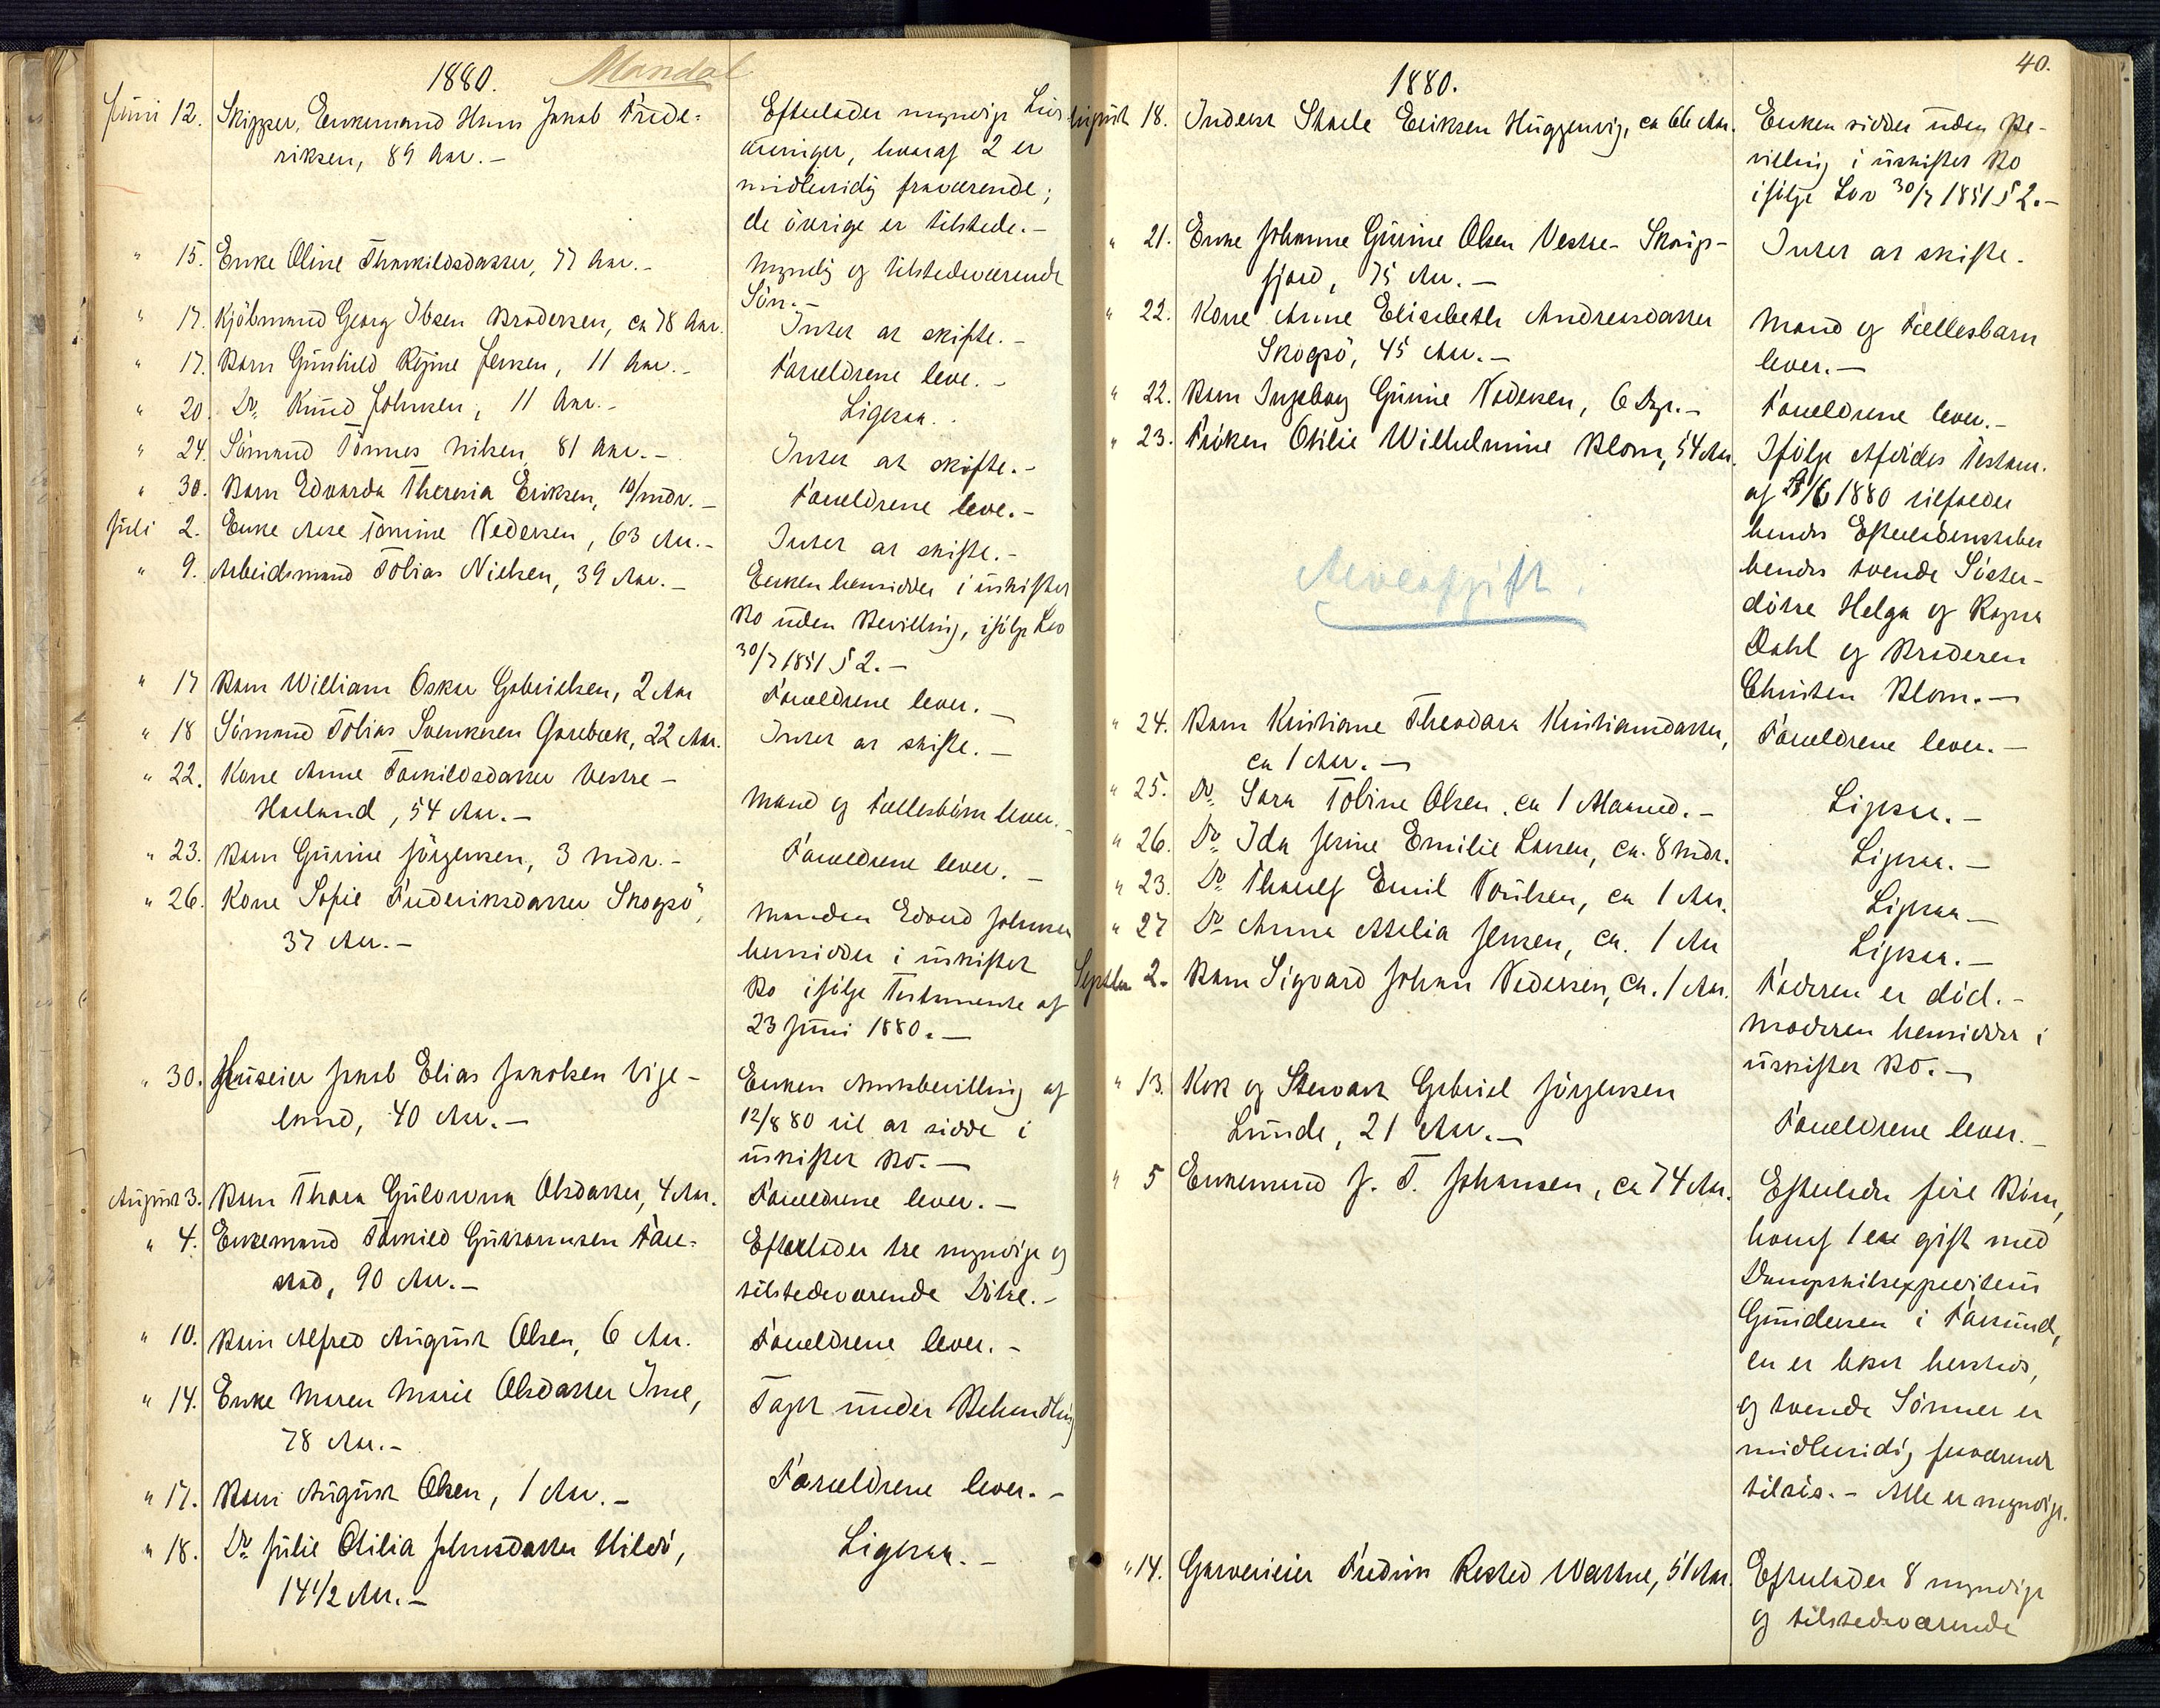 1880. Mandal
Juni 12. Skipper, Enkemand Hans Jakob Frede-
riksen, 89 Aar. –
Efterlader myndige Livs
arvinger, hvoraf 2 er
midlertidig fraværende;
de övrige er tilstede. –
" 15. Enke Oline Thorkildsdatter, 77 Aar. –
Myndig og tilstedeværende
Sön. –
" 17. Kjöbmand Georg Ibsen Brodersen, ca 78 Aar.
Intet at skifte. –
" 17. Barn Gunhild Regine Jensen, 11 Aar. –
Forældrene leve. –
" 20. Do. Knud Johnsen, 11 Aar. –
Ligesaa. –
" 24. Sömand Tönnes Nilsen, 81 Aar. –
Intet at skifte. –
" 30. Barn Edvarda Theresia Eriksen, 10/mdr. –
Forældrene leve. –
Juli 2. Enke Ase Tomine Pedersen, 63 Aar. –
Intet at skifte. –
" 9. Arbeidsmand Tobias Nielsen, 39 Aar. –
Enken hensidder i uskiftet
Bo uden Bevilling, ifölge Lov
30/7 1851 § 2. –
" 17 Barn William Oskar Gabrielsen, 2 Aar
Forældrene lever. –
" 18 Sömand Tobias Svenksen Gaasebæk, 22 Aar.
Intet at skifte. –
" 22. Kone Anne Torkildsdatter Vestre –
Haaland, 54 Aar. –
Mand og Fællesbörn lever. –
" 23. Barn Gurine Jörgensen, 3 Mdr. –
Forældrene lever. –
" 26. Kone Sofie Frederiksdatter Skogsö,
37 Aar. –
Manden Edvard Johnsen
hensidder i uskiftet
Bo ifölge Testamente af
23 Juni 1880. –
" 30. Huseier Jakob Elias Jakobsen Vige-
land, 40 Aar. –
Enken Amtsbevilling af
12/8 80 til at sidde i
uskiftet Bo. –
August 3. Barn Thora Gulowna Olsdatter, 4 Aar.
Forældrene lever. –
" 4. Enkemand Torkild Guttormsen Fare-
stad, 90 Aar. –
Efterlader tre myndige og
tilstedeværende Dötre. –
" 10. Barn Alfred August Olsen, 6 Aar.
Forældrene lever. –
" 14. Enke Maren Marie Olsdatter Ime,
78 Aar. –
Taget under Behandling
" 17. Barn August Olsen, 1 Aar. –
Forældrene lever. –
" 18. Do. Julie Otilia Johnsdatter Hilles,
14 1/2 Aar. –
Ligesaa. –
40.
1880.
August 18. Inderst Staale Eriksen Huggenvig, ca 66 Aar.
Enken sidder uden Be-
villing i uskiftet Bo
ifölge Lov 30/7 1851 § 2. –
" 21. Enke Johanne Gurine Olsen Vestre- Skogs-
fjord, 75 Aar. –
Intet at skifte. –
" 22. Kone Anne Elisabeth Andreasdatter
Skogsö, 45 Aar. –
Mand og Fællesbarn
lever. –
" 22. Barn Ingeborg Gurine Pedersen, 6 Dge. –
Forældrene lever. –
" 23. Fröken Otilie Wilhelmine Blom, 54 Aar.
Ifölge Afdödes Testam.
af /6 1880 tilfalder
hendes Efterladenskaber
hendes tvende Söster-
dötre Helga og Ragna
Dahl og Broderen
Christen Blom. –
Arveafgift.
" 24. Barn Kristiane Theodora Kristiansdatter,
ca 1 Aar. –
Forældrene lever. –
" 25. Do. Sara Tobine Olsen, ca 1 Maaned. –
Ligesaa. –
" 26. Do. Ida Jesine Emilie Larsen, ca. 8 Mdr.
Ligesaa. –
" 23. Do. Thoralf Emil Poulsen, ca 1 Aar.
Ligesaa –
" 27 Do. Anna Attelia Jensen, ca. 1 Aar
Ligesaa. –
Septbr 2. Barn Sigvard Johan Pedersen, ca. 1 Aar.
Faderen er död. –
Moderen hensidder i
uskiftet Bo. –
" 13. Kok og Stewart Gabriel Jörgensen
Lunde, 21 Aar. –
Forældrene lever. –
" 5 Enkemand J. T. Johansen, ca 74 Aar.
Efterlader fire Börn,
hvoraf 1 er gift med
Dampskibsexpediteur
Gundersen i Farsund,
en er bosat hersteds,
og tvende Sönner er
midlertidig fraværende
tilsös. – Alle er myndige.
" 14. Garverieier Fredrik Rested Wattne, 51 Aar.
Efterlader 8 myndige
og tilstedeværende